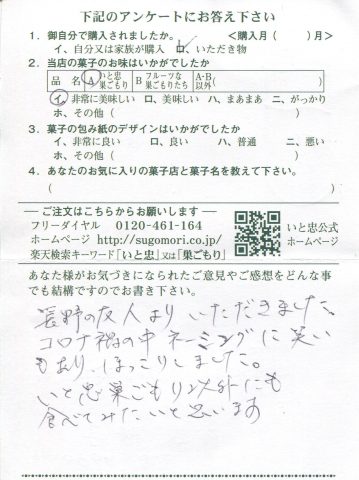 下記のアンケートにお答え下さい
1. 御自分で購入されましたか。 <購入月( )月>
イ、自分又は家族が購入 ロ、いただき物
2. 当店の菓子のお味はいかがでしたか
品 名 A いと忠巣ごもり B フルーツな巣ごもりたち A・B以外( )
イ、非常に美味しい ロ、美味しい ハ、まあまあ ニ、がっかり
ホ、その他( )
3. 菓子の包み紙のデザインはいかがでしたか
イ、非常に良い ロ、良い ハ、普通 ニ、悪い
ホ、その他( )
4. あなたのお気に入りの菓子店と菓子名を教えて下さい。
( )
ご注文はこちらからお願いします
フリーダイヤル 0120-461-164
ホームページ http://sugomori.co.jp/
楽天検索キーワード「いと忠」又は「巣ごもり」
いと忠公式
ホームページ
あなた様がお気づきになられたご意見やご感想をどんな事
でも結構ですのでお書き下さい。
長野の友人よりいただきました。
コロナ禍の中ネーミングに笑い
もあり、ほっこりしました。
いと忠巣ごもり以外にも
食べてみたいと思います